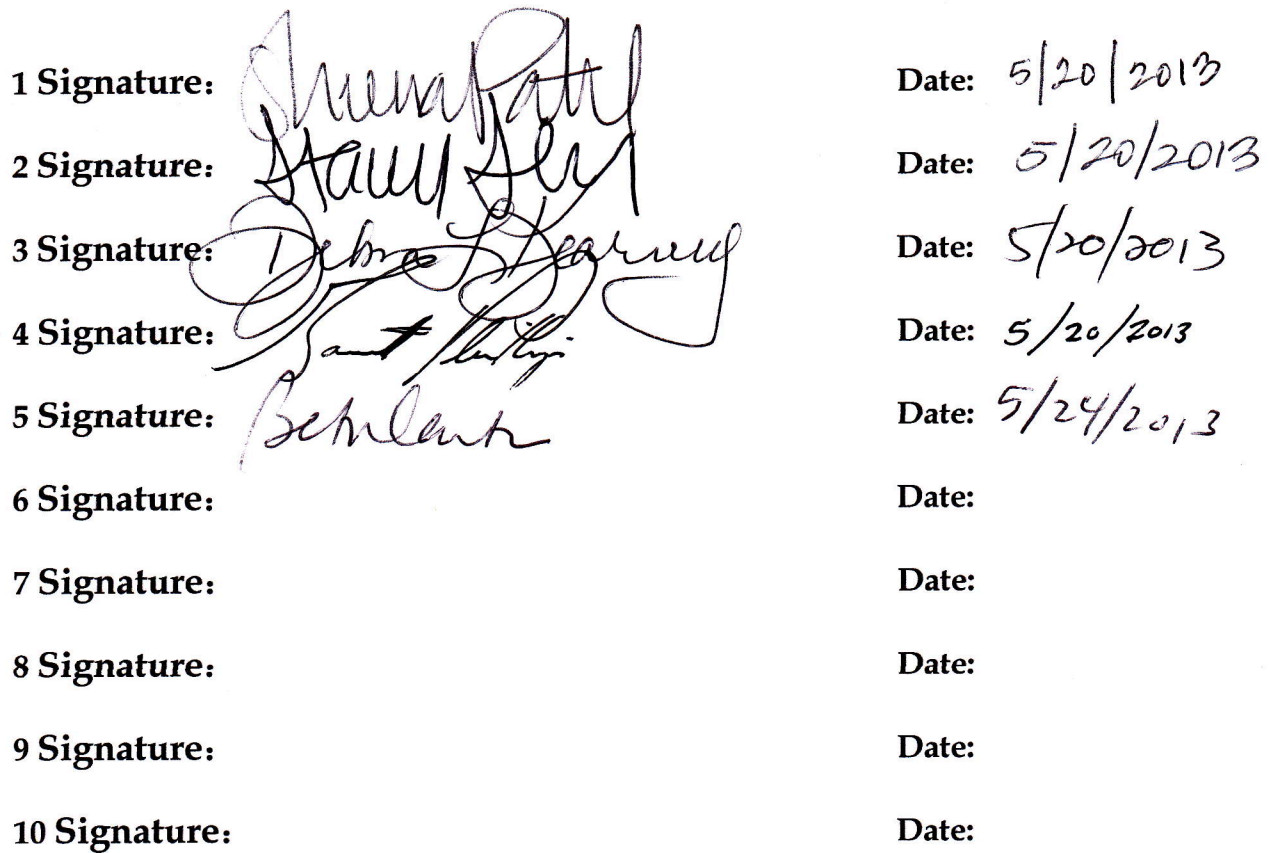 1 Signature: Date: 5/20/2013
2 Signature: Date: 5/20/2013
3 Signature: Debra L Date: 5/20/2013
4 Signature: Date: 5/20/2013
5 Signature: Date: 5/24/2013
6 Signature: Date:
7 Signature: Date:
8 Signature: Date:
9 Signature: Date:
10 Signature: Date: